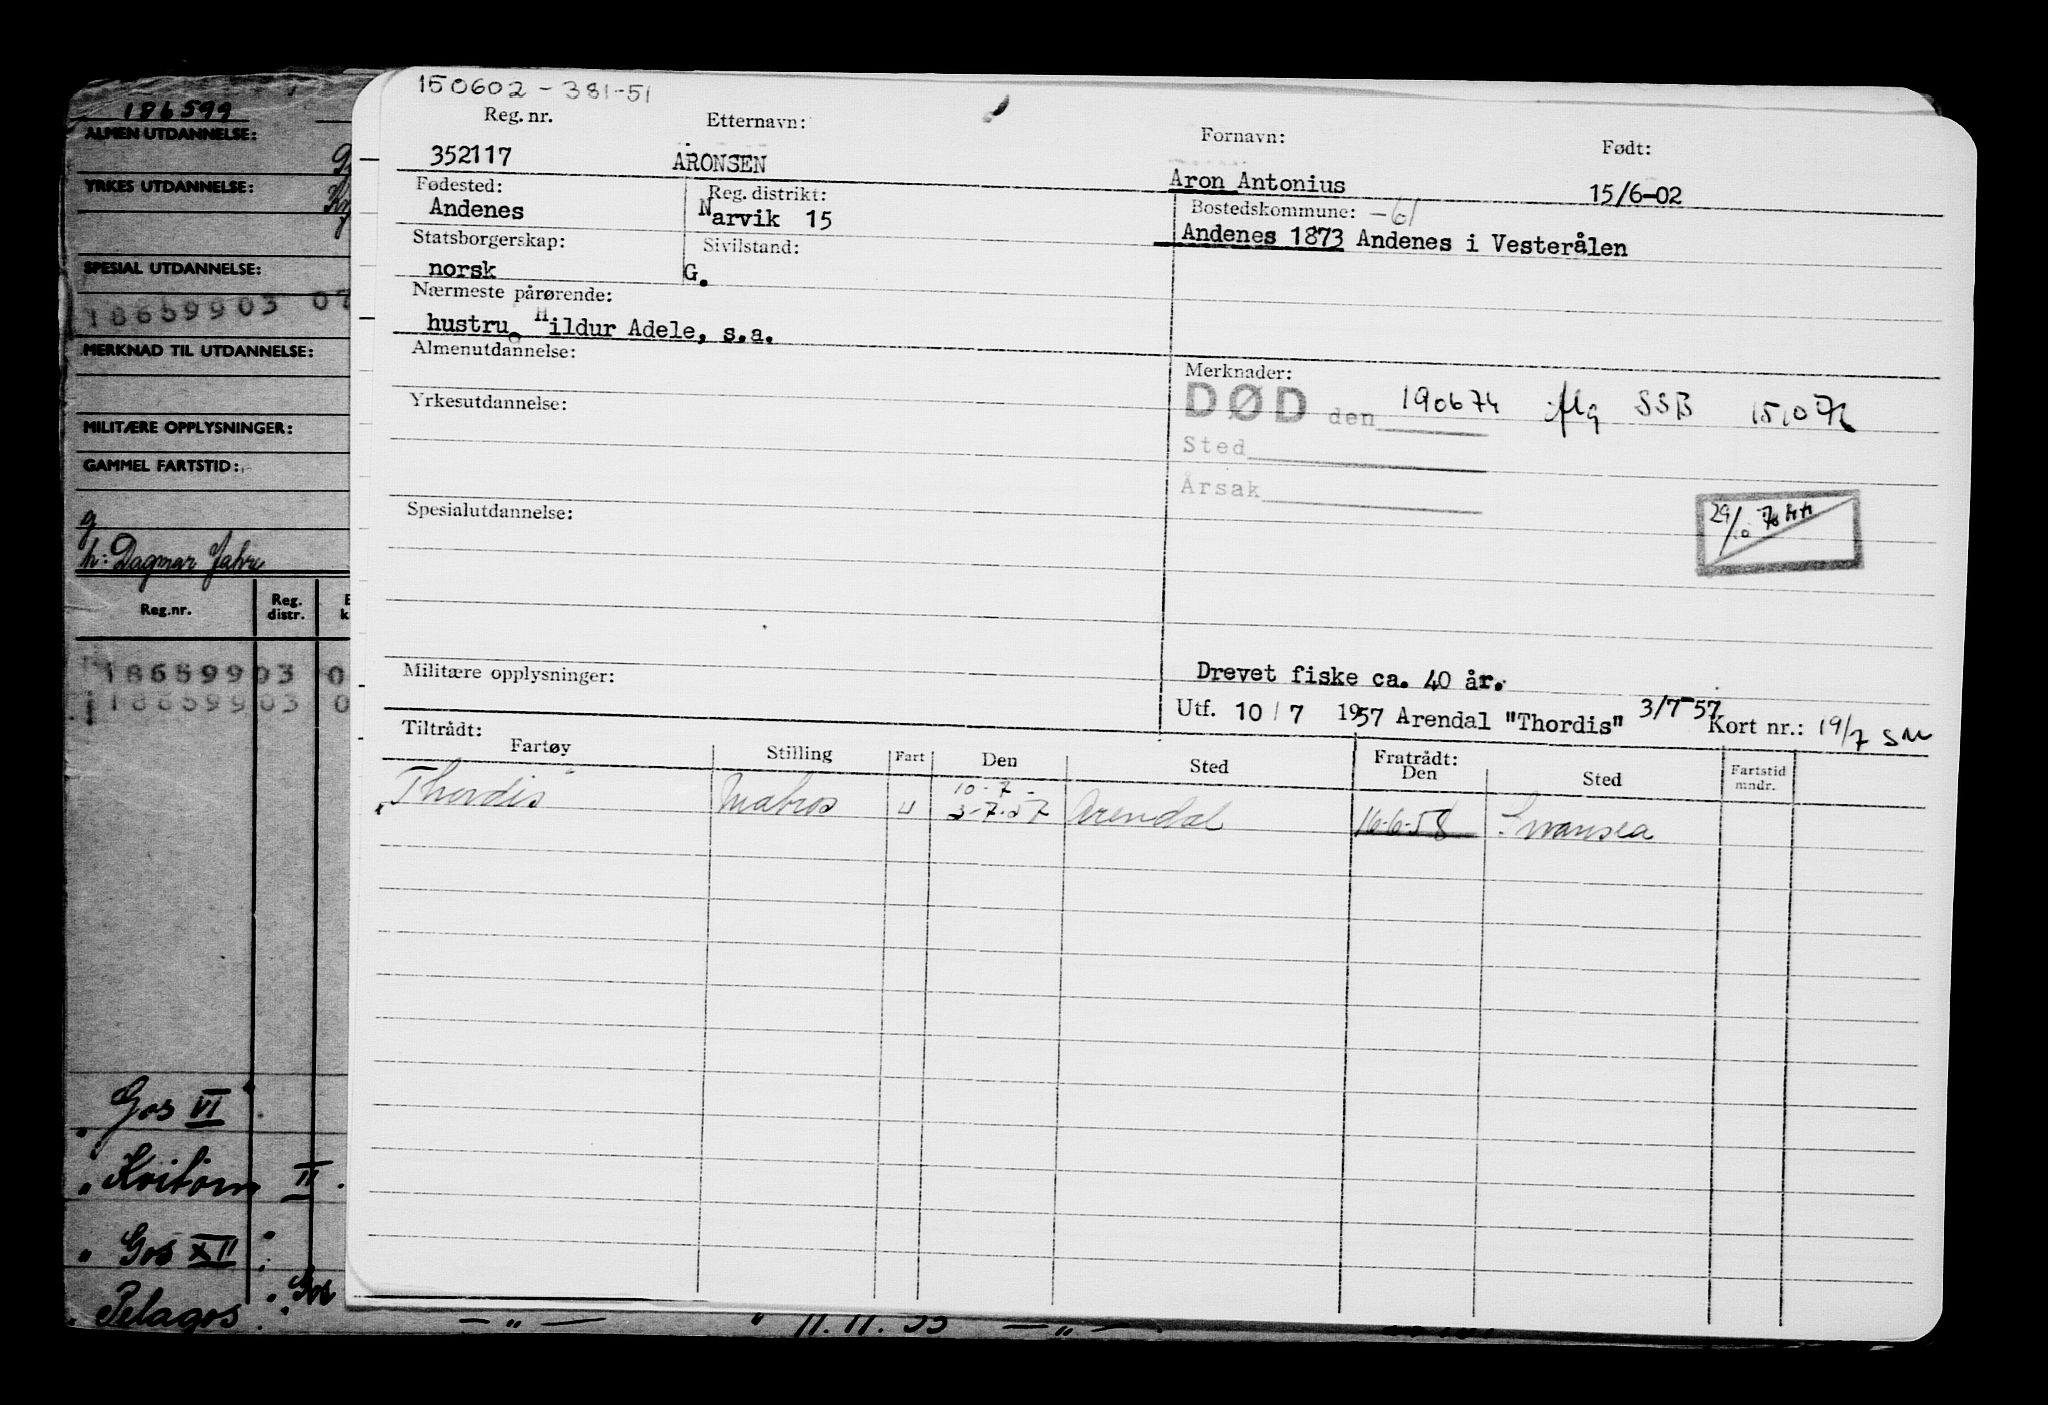 150602 - 381-51
Reg. nr. Etternavn: Fornavn: Født:
352117 ARONSEN Aron Antonius 15/6-02
Fødested: Reg. distrikt: Bostedskommune: -61
Andenes Narvik 15 Andenes 1873 Andenes i Vesterålen
Statsborgerskap: Sivilstand:
norsk G.
Nærmeste pårørende:
hustru. Hildur Adele, s.a.
Almenutdannelse: Merknader:
DØD den 190674 flg SSB
Yrkesutdannelse:
Sted
Årsak
Spesialutdannelse:
Militære opplysninger: Drevet fiske ca. 40 år.
Utf. 10/7 1957 Arendal "Thordis" 3/7-57 Kort nr.: 19/7 SM
Tiltrådt: Fratrådt:
Fartøy Stilling Fart Den Sted Den Sted Fartstid mndr.
10-7-
Thordis Matros U 3-7-57 Arendal 16-6-58 Swansea
186599
ALMEN UTDANNELSE:
YRKES UTDANNELSE:
SPESIAL UTDANNELSE:
18659903 07
MERKNAD TIL UTDANNELSE:
MILITÆRE OPPLYSNINGER:
GAMMEL FARTSTID:
g
h: Dagmar Jahre
Reg.nr. Reg. distr.
18659903 0
18659903 0
Gos VI
" Kvitørn II.
" Gos XII
" Pelagos
— " — " 11.11.55 — " —